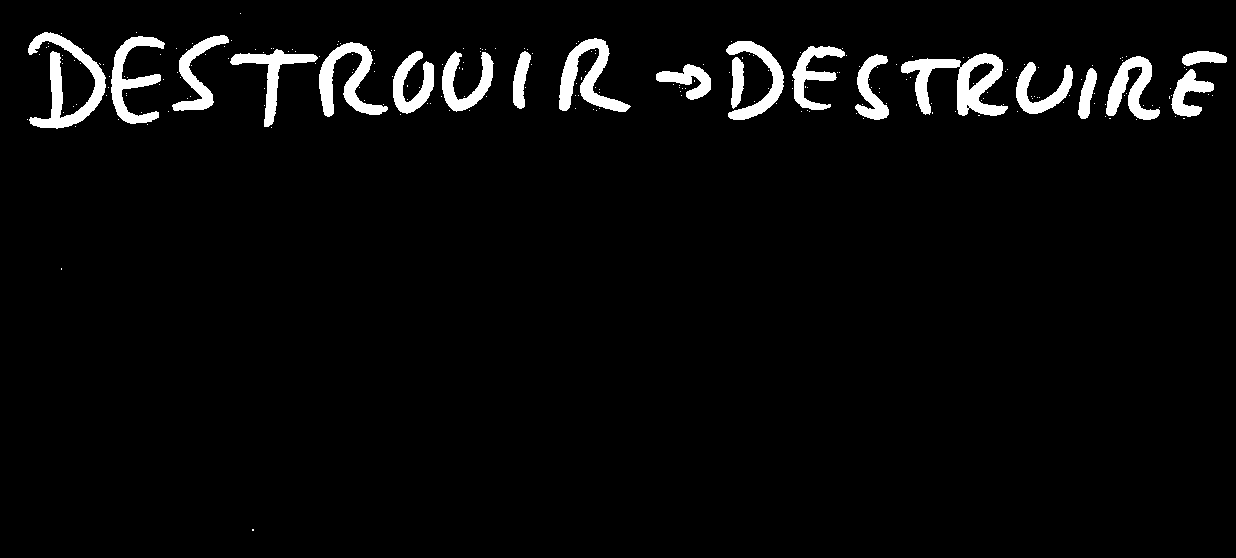 DESTROUIR → DESTRUIRE